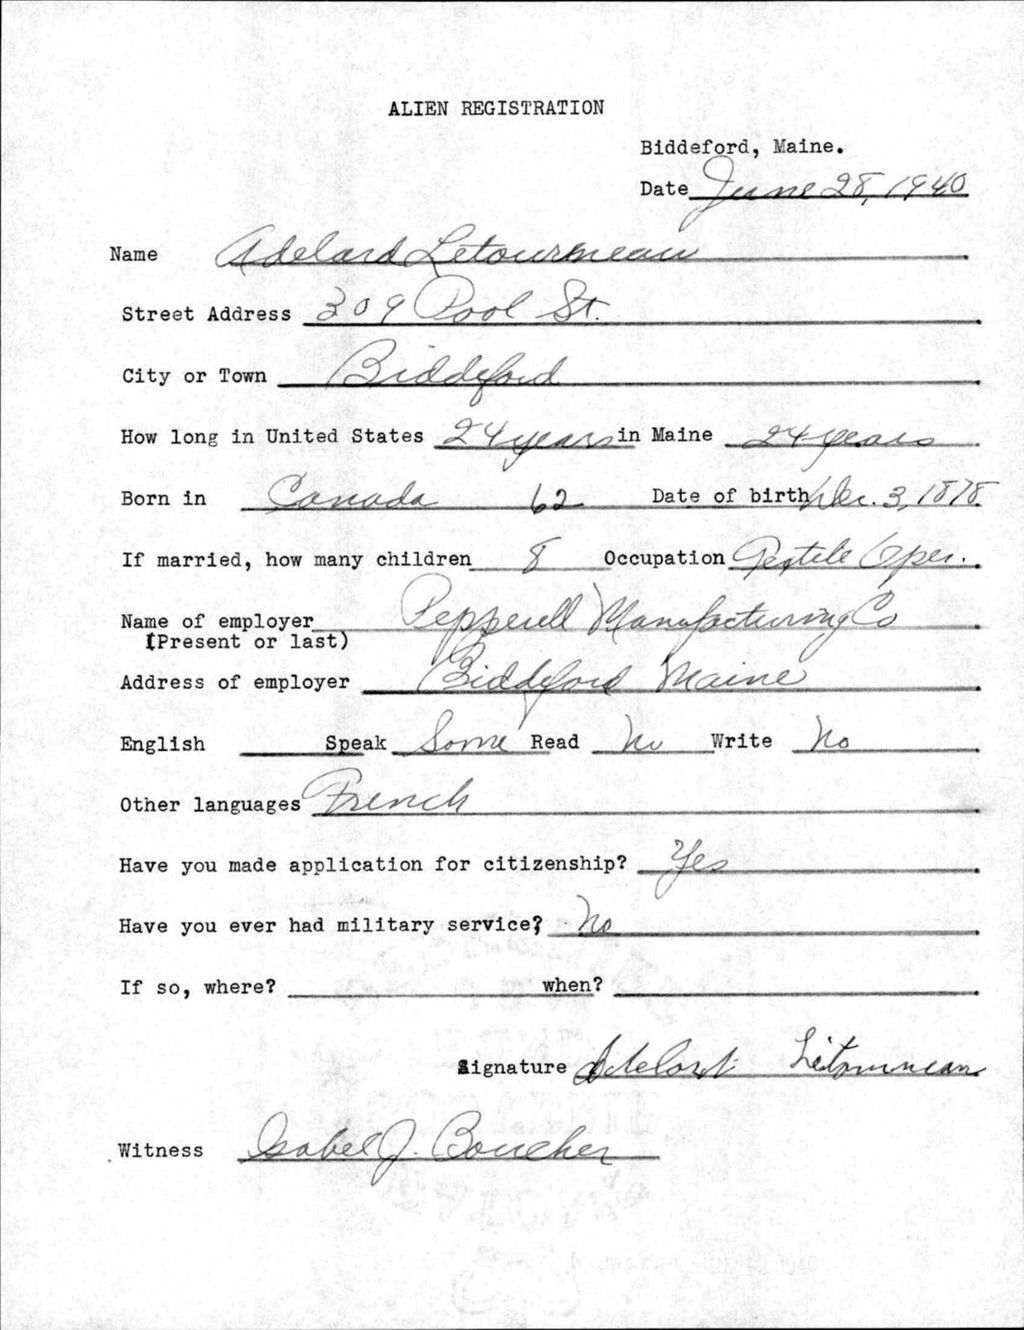 ALIEN REGISTRATION
Biddeford, Maine.
Date June 28, 1940
Name Adelard Letourneau
Street Address 309 Pool St.
City or Town Biddeford
How long in United States 24 years in Maine 24 years
Born in Canada 62 Date of birth Dec. 3, 1878
If married, how many children 8 Occupation Textile Oper.
Name of employer Pepperell Manufacturing Co
(Present or last)
Address of employer Biddeford Maine
English Speak Some Read No Write No
Other languages French
Have you made application for citizenship? Yes
Have you ever had military service? No
If so, where? when?
Signature Adelard Letourneau
Witness Isabel J. Boucher